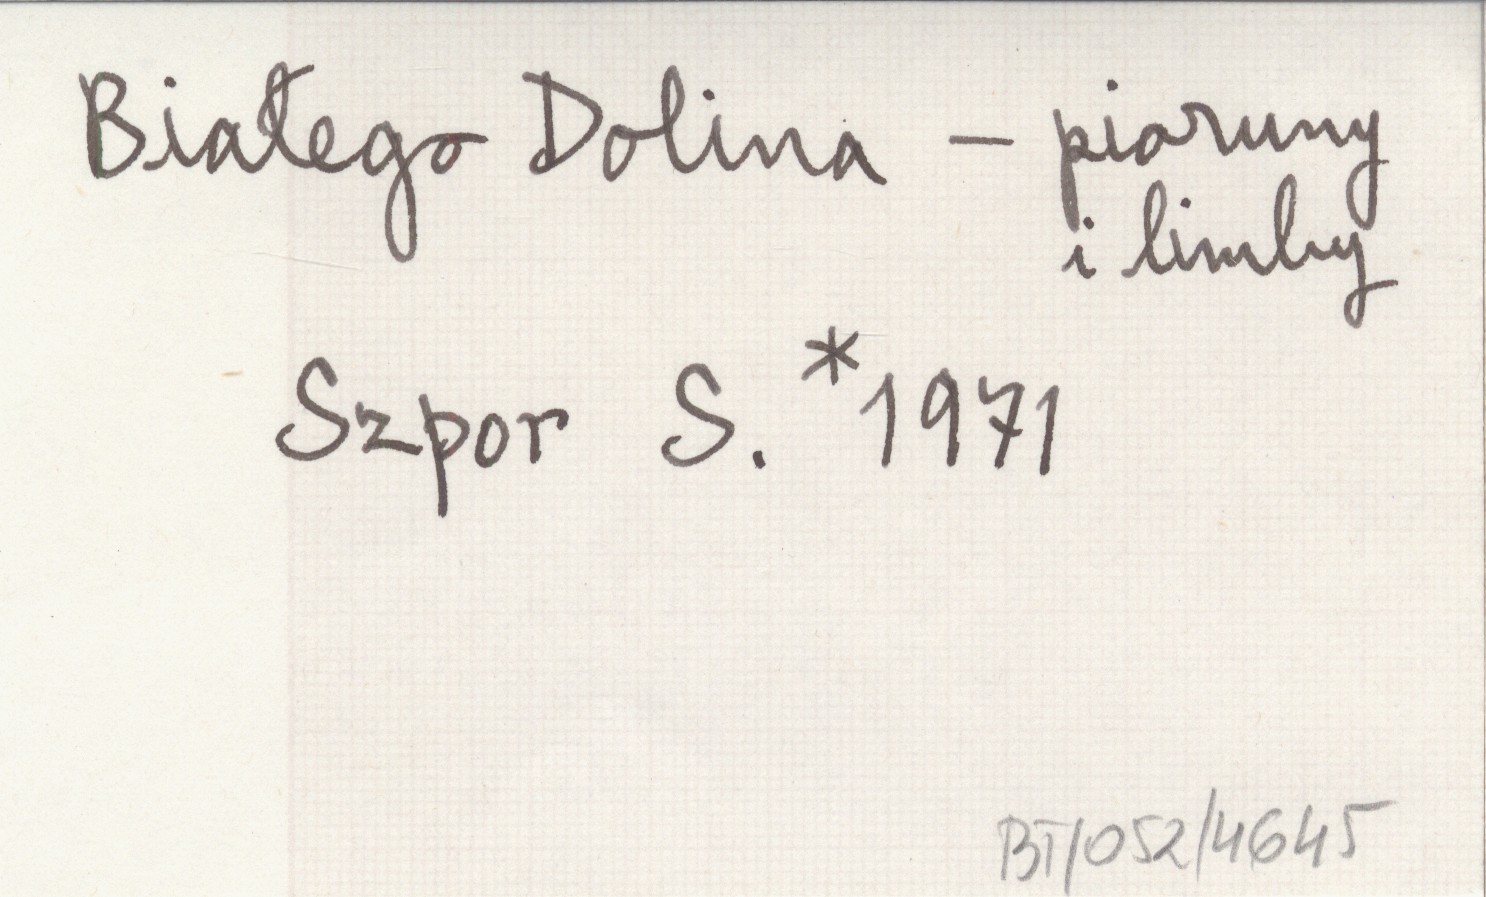 Białego Dolina – pioruny
i limby
Szpor S. *1971
BT/052/4645